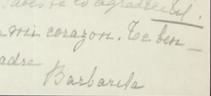 lo agradecerá.
mi corazon. Te ben-
adre
Barbarita